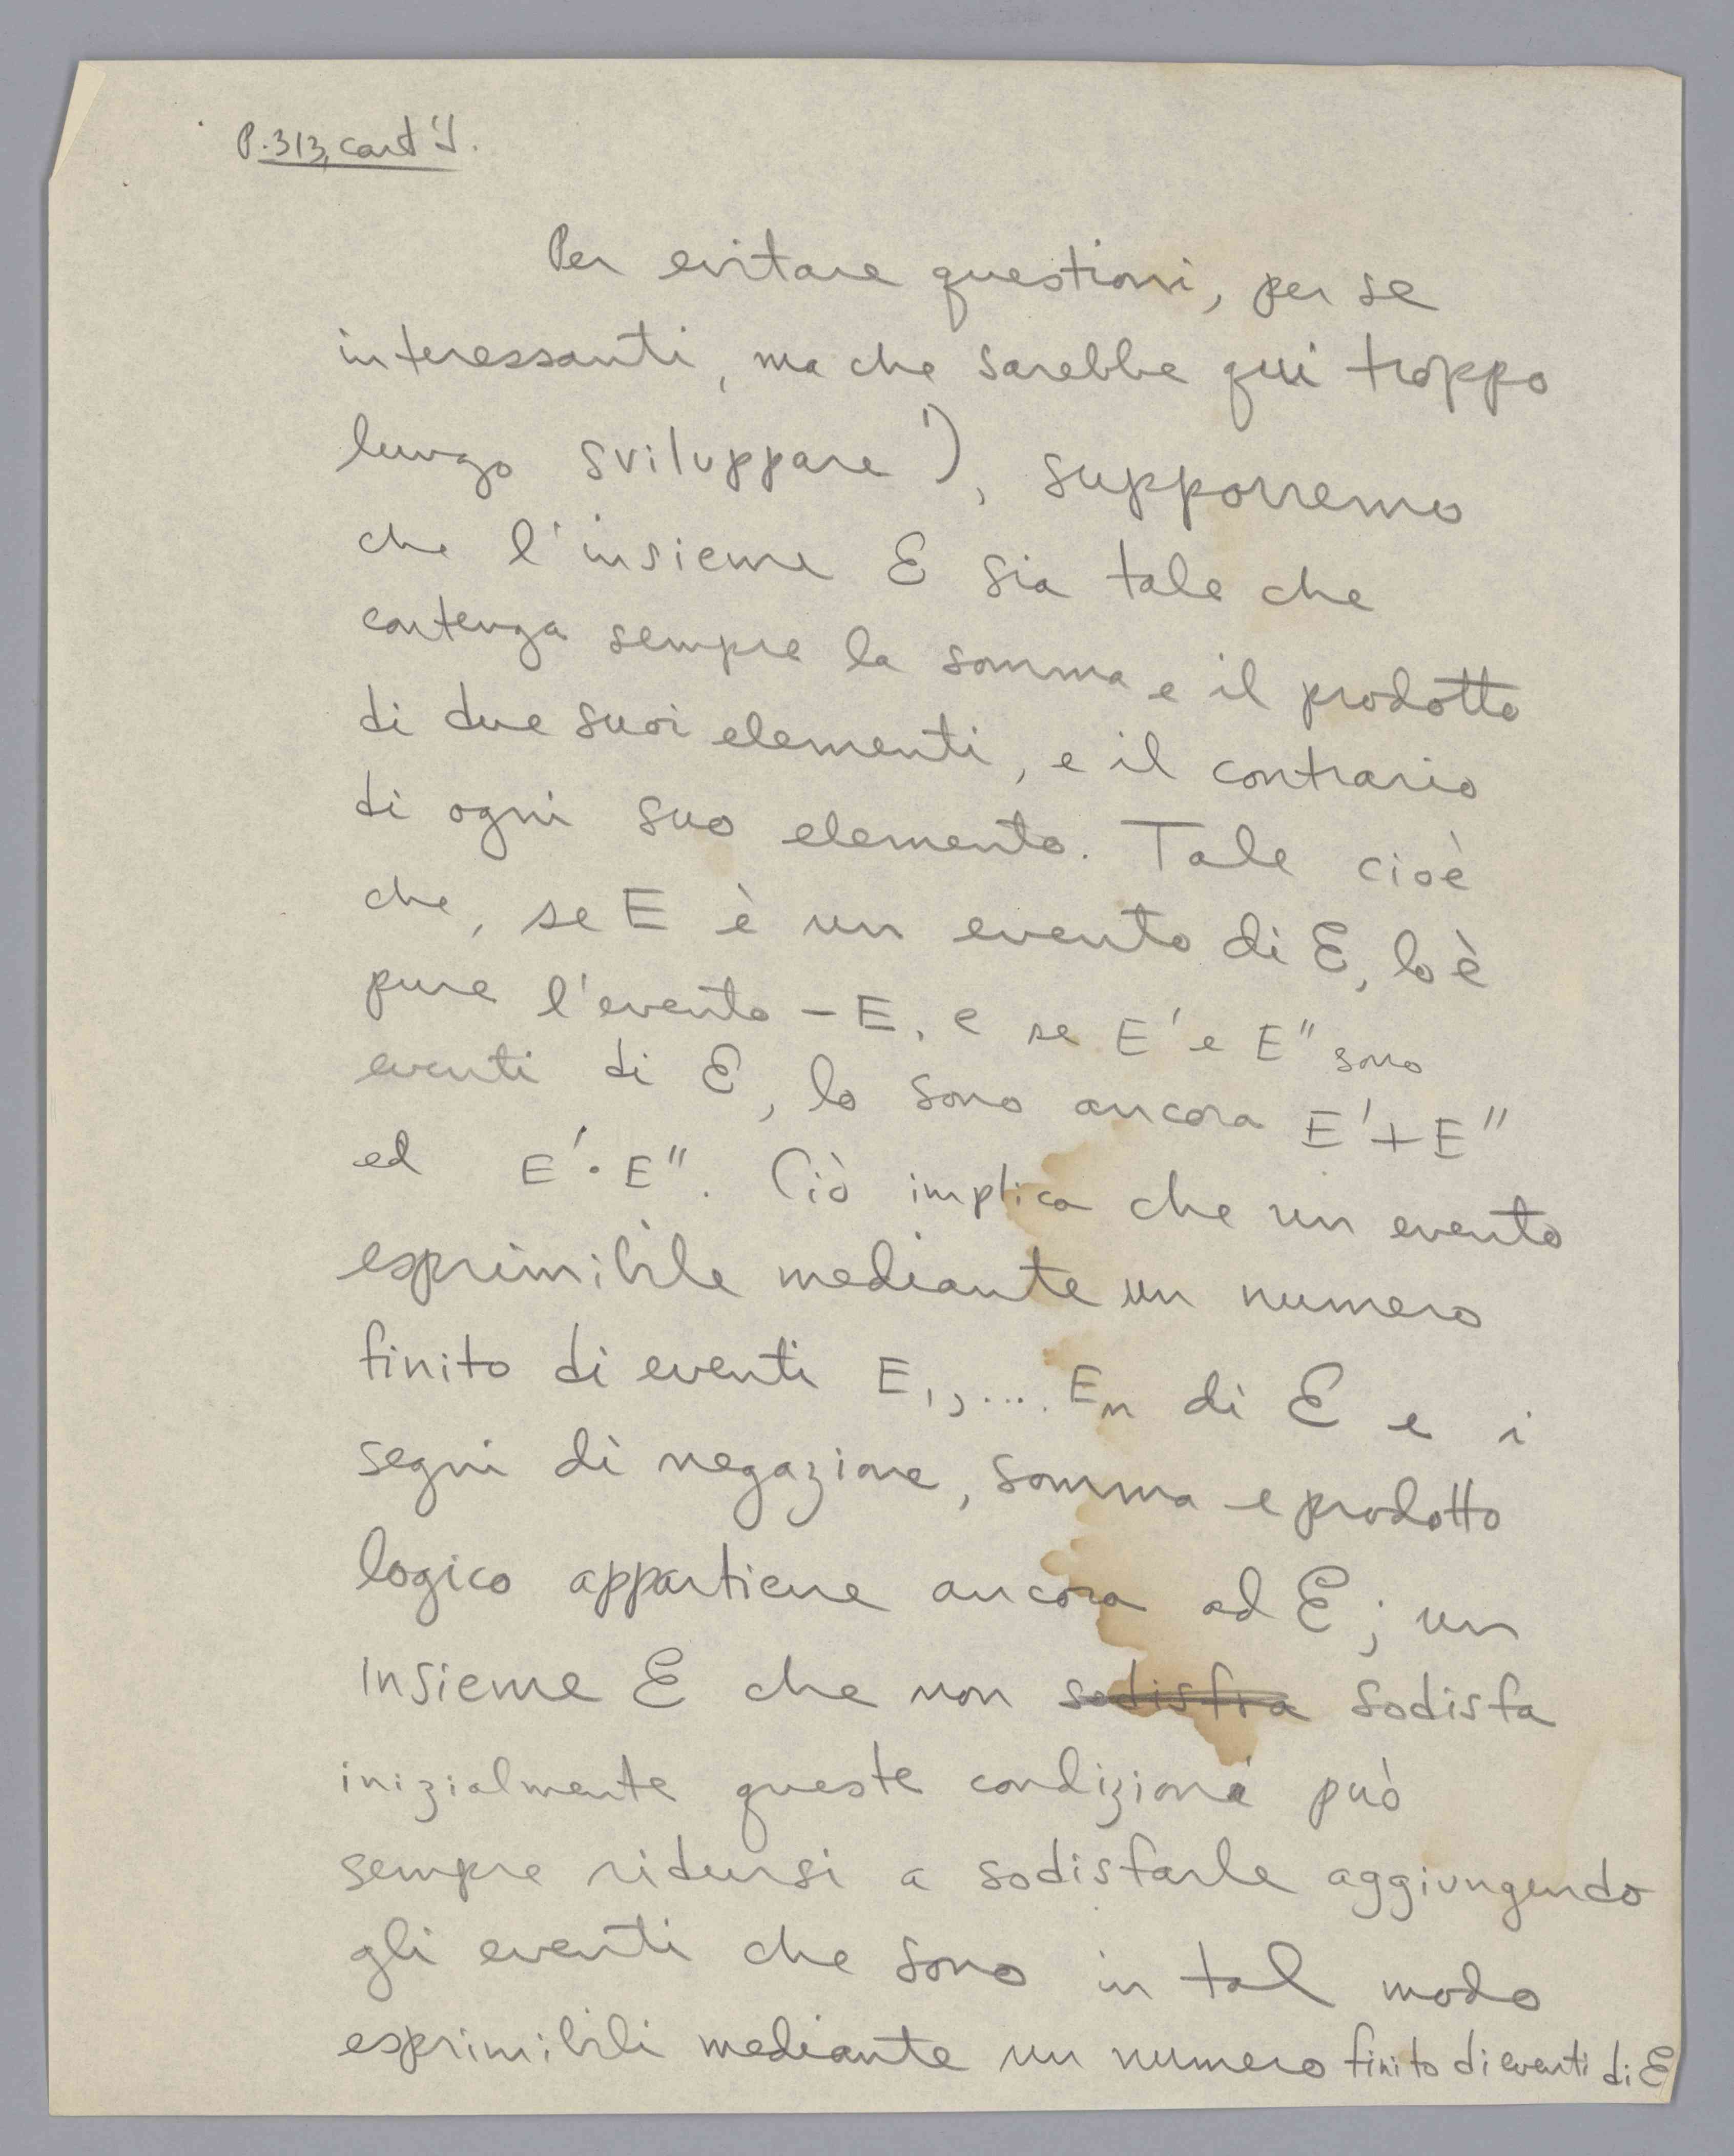 P. 313, cont'd.
Per evitare questioni, per se
interessanti, ma che sarebbe qui troppo
lungo sviluppare ¹), supporremo
che l'insieme ℰ sia tale che
contenga sempre la somma e il prodotto
di due suoi elementi, e il contrario
di ogni suo elemento. Tale cioè
che, se E è un evento di ℰ, lo è
pure l'evento – E, e se E' e E" sono
eventi di ℰ, lo sono ancora E' + E"
ed E' · E". Ciò implica che un evento
esprimibile mediante un numero
finito di eventi E₁, .... Eₙ di ℰ e i
segni di negazione, somma e prodotto
logico appartiene ancora ad ℰ; un
insieme ℰ che non sodisfra sodisfa
inizialmente queste condizioni può
sempre ridursi a sodisfarle aggiungendo
gli eventi che sono in tal modo
esprimibili mediante un numero finito di eventi di ℰ